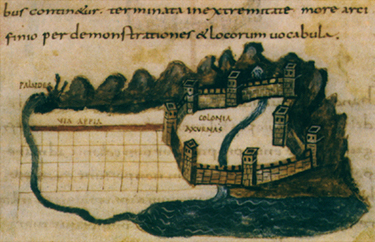 bus continetur. terminata in extremitate more arci
finio per demonstrationes & locorum vocabula.
PALUDES
VIA APPIA
COLONIA
AXURNAS